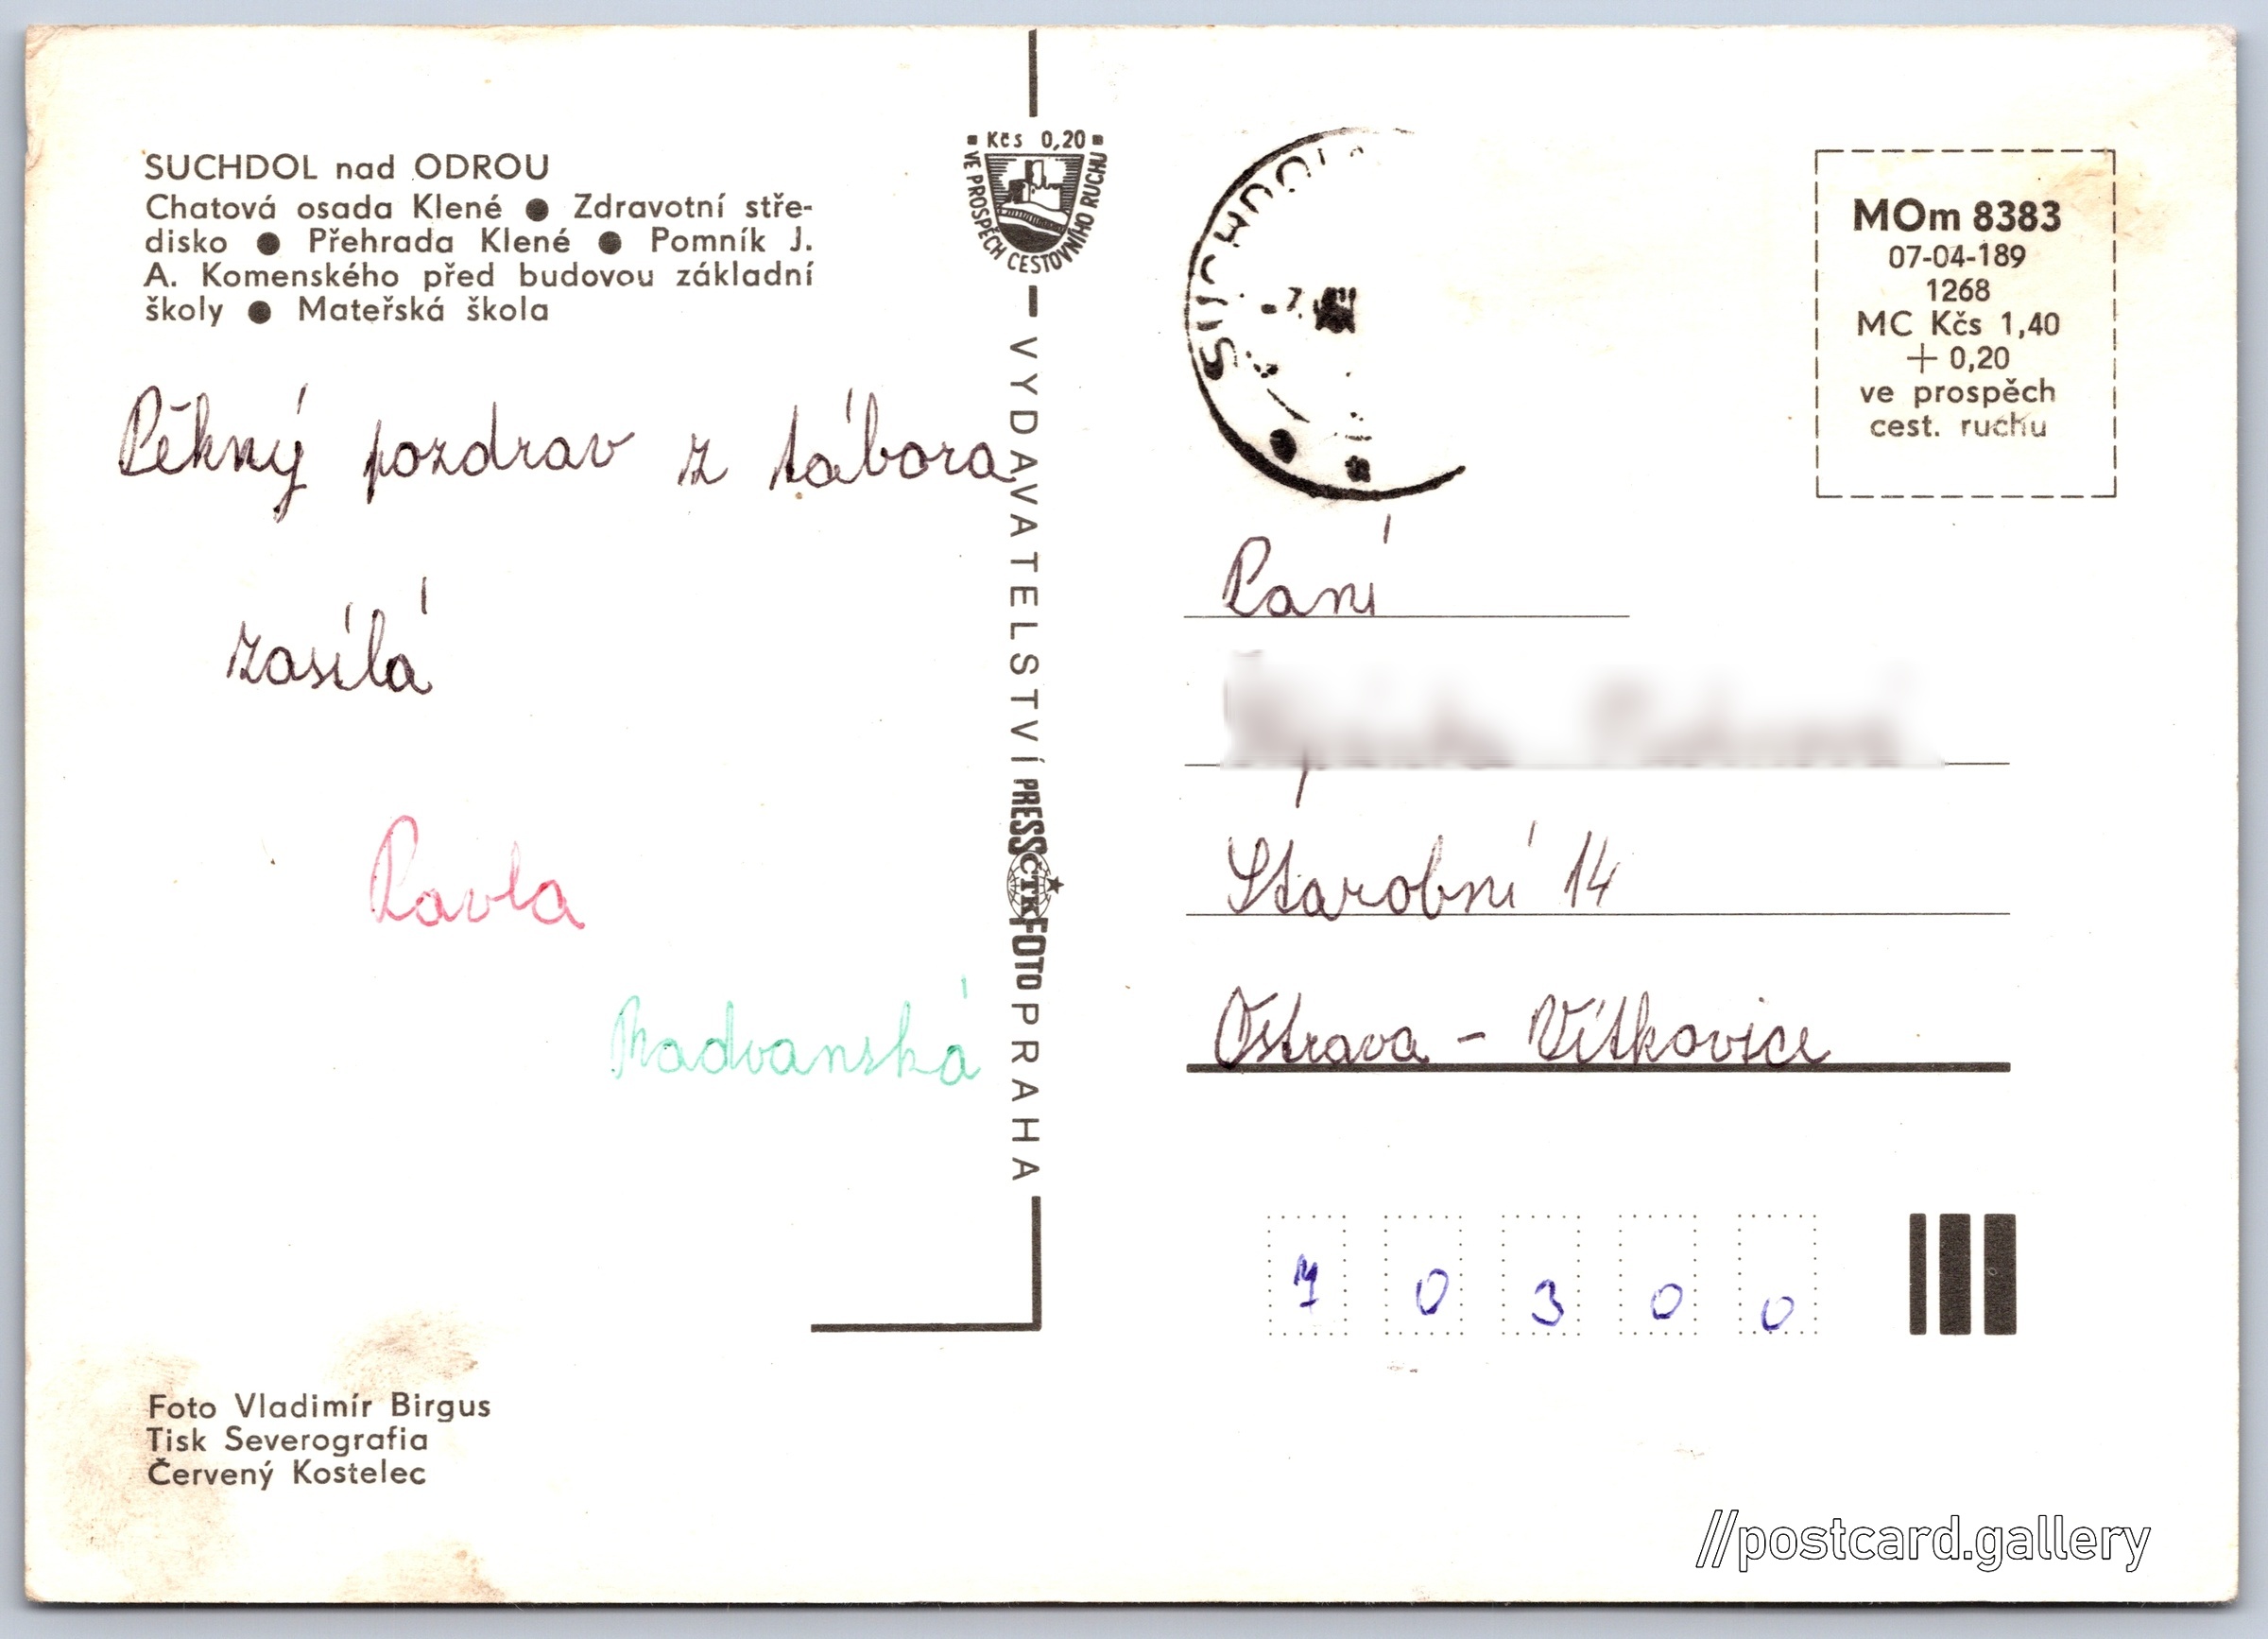 SUCHDOL nad ODROU
Chatová osada Klené ● Zdravotní stře-
disko ● Přehrada Klené ● Pomník J.
A. Komenského před budovou základní
školy ● Mateřská škola
Pěkný pozdrav z tábora
zasílá
Pavla
Radvanská
Foto Vladimír Birgus
Tisk Severografia
Červený Kostelec
Kčs 0,20
VE PROSPĚCH CESTOVNÍHO RUCHU
VYDAVATELSTVÍ PRESSČTKFOTO PRAHA
SUCHDOL
MOm 8383
07-04-189
1268
MC Kčs 1,40
+ 0,20
ve prospěch
cest. ruchu
Paní
Starobní 14
Ostrava - Vítkovice
7 0 3 0 0
//postcard.gallery